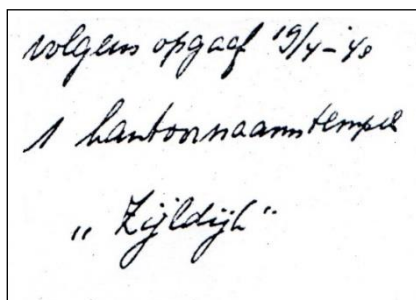 volgens opgaaf 19/4-'48
1 kantoornaamstempel
„ Zijldijk "